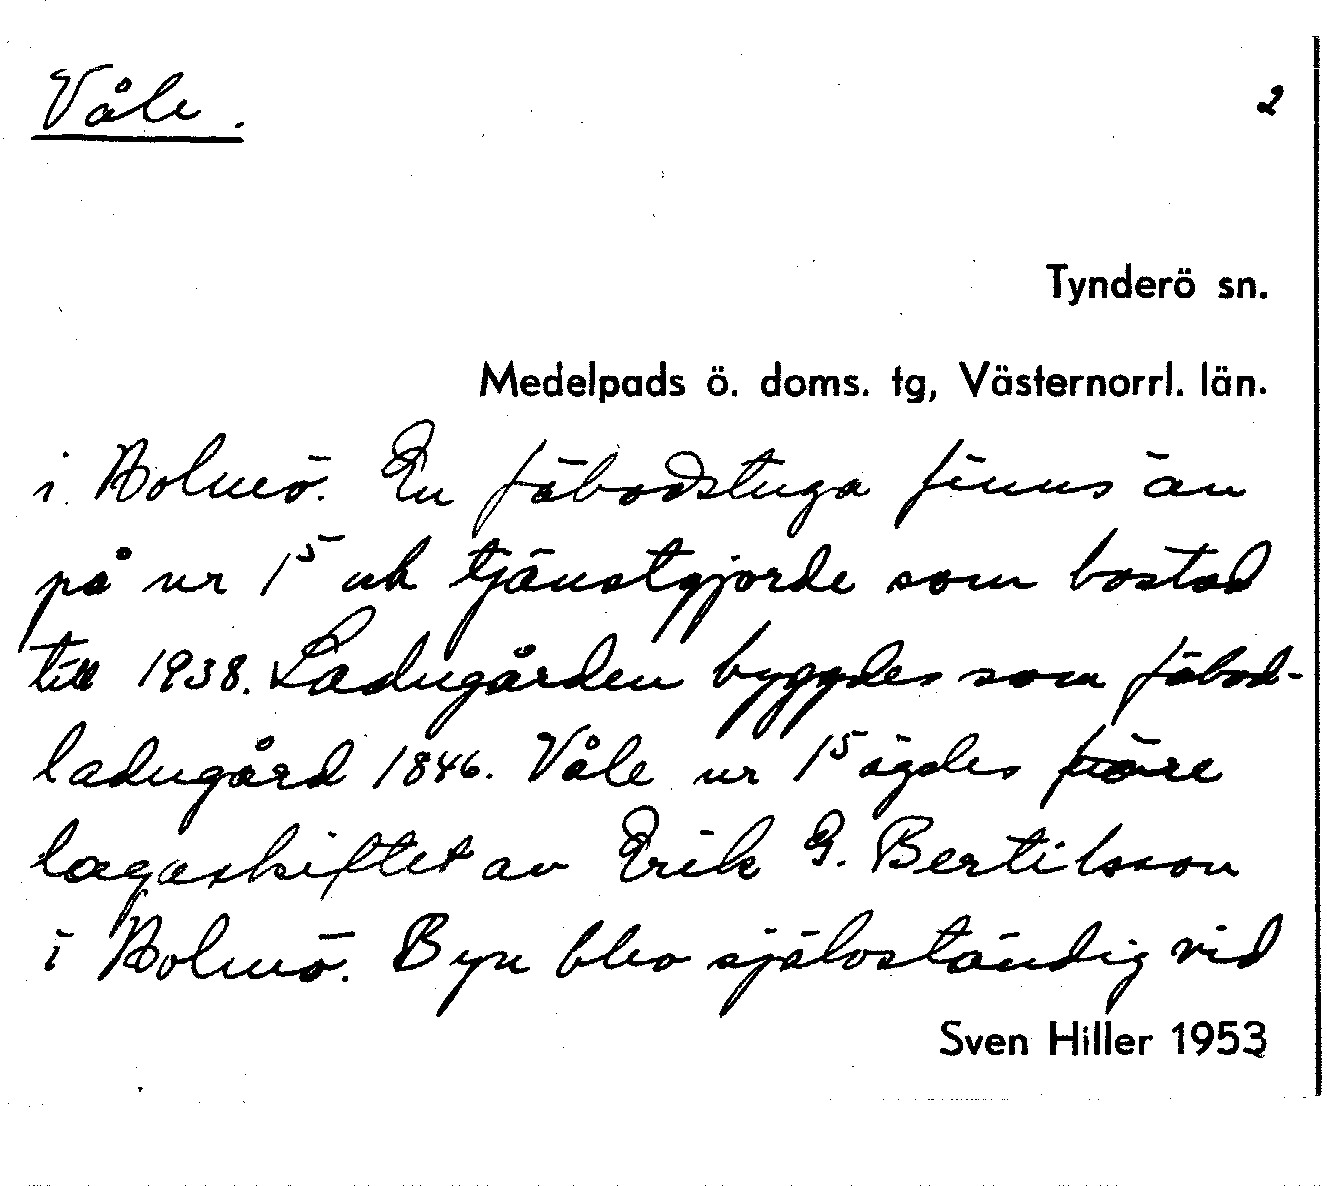 Våle. 2
Tynderö sn.
Medelpads ö. doms. tg, Västernorrl. län.
i Holmö. En fäbodstuga finns än
på nr 1⁵ och tjänstgjorde som bostad
till 1938. Ladugården byggdes som fäbod-
ladugård 1846. Våle nr 1⁵ ägdes före
lagaskiftet av Erik G. Bertilsson
i Holmö. Byn blev självständig vid
Sven Hiller 1953